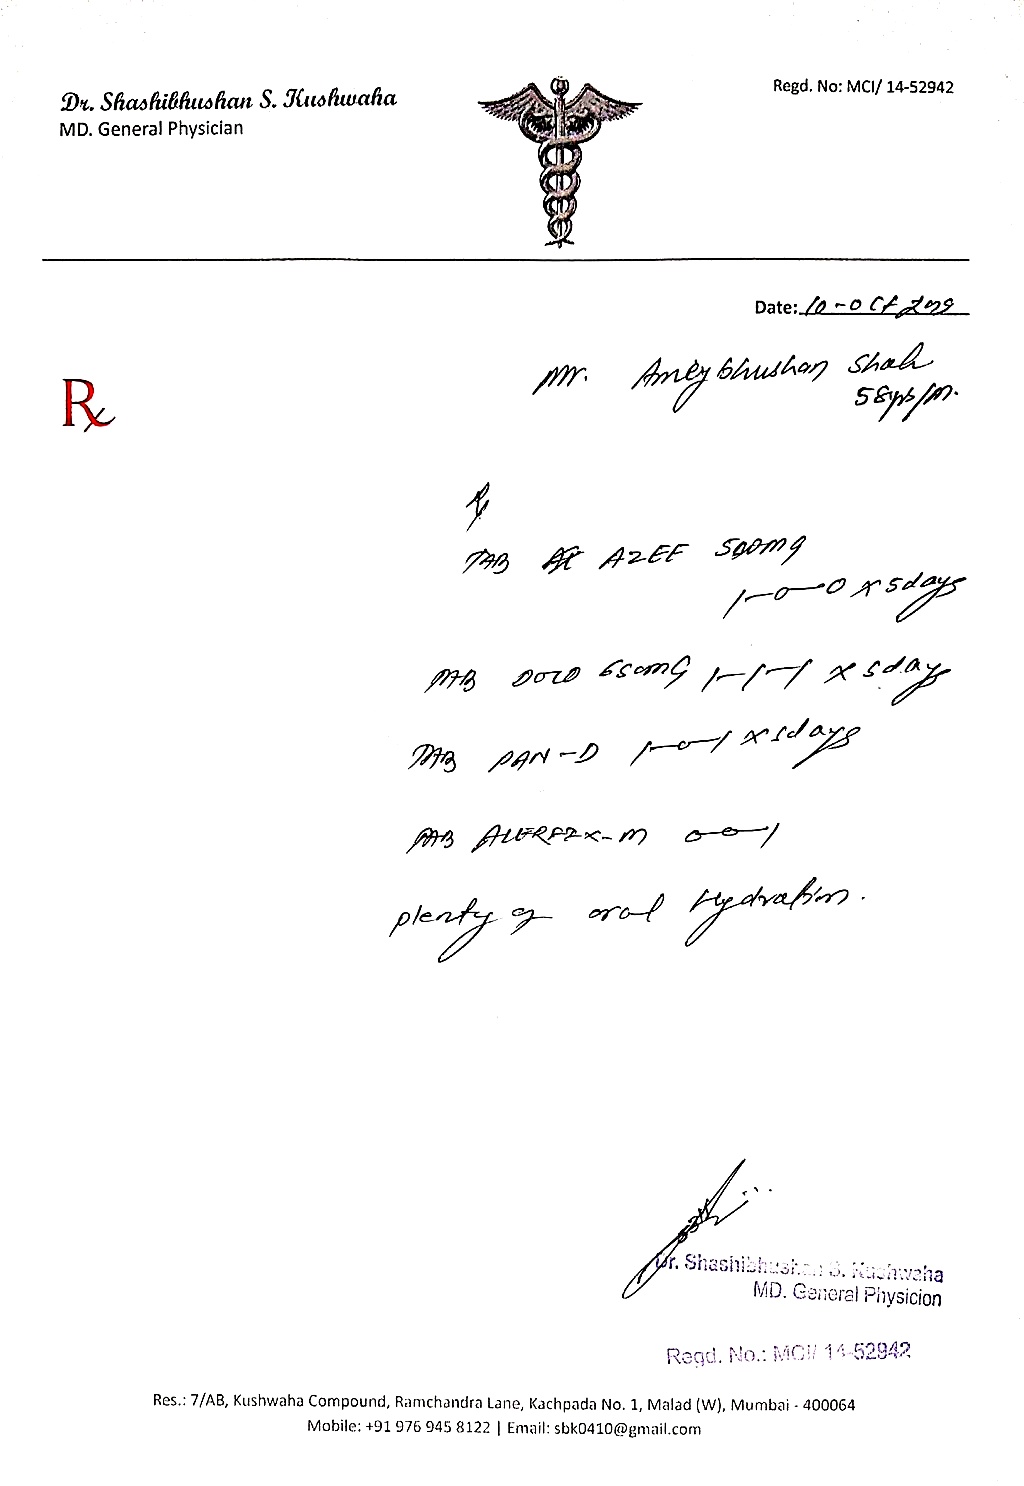 Dr. Shashibhushan S. Kushwaha
MD. General Physician
Regd. No: MCI/ 14-52942
Date: 10-Oct
Mr. Shah
58yrs/M.
Rx
Rx
TAB AZEE 500mg
1-0-0 x 5days
TAB DOLO 650mg 1-1-1 x 5days
TAB PAN-D 1-0-1 x 5days
TAB -M 0-0-1
plenty of oral Hydration.
Dr. Shashibhushan S. Kushwaha
MD. General Physicion
Regd. No.: MCI/ 14-52942
Res.: 7/AB, Kushwaha Compound, Ramchandra Lane, Kachpada No. 1, Malad (W), Mumbai - 400064
Mobile: +91 976 945 8122 | Email: sbk0410@gmail.com